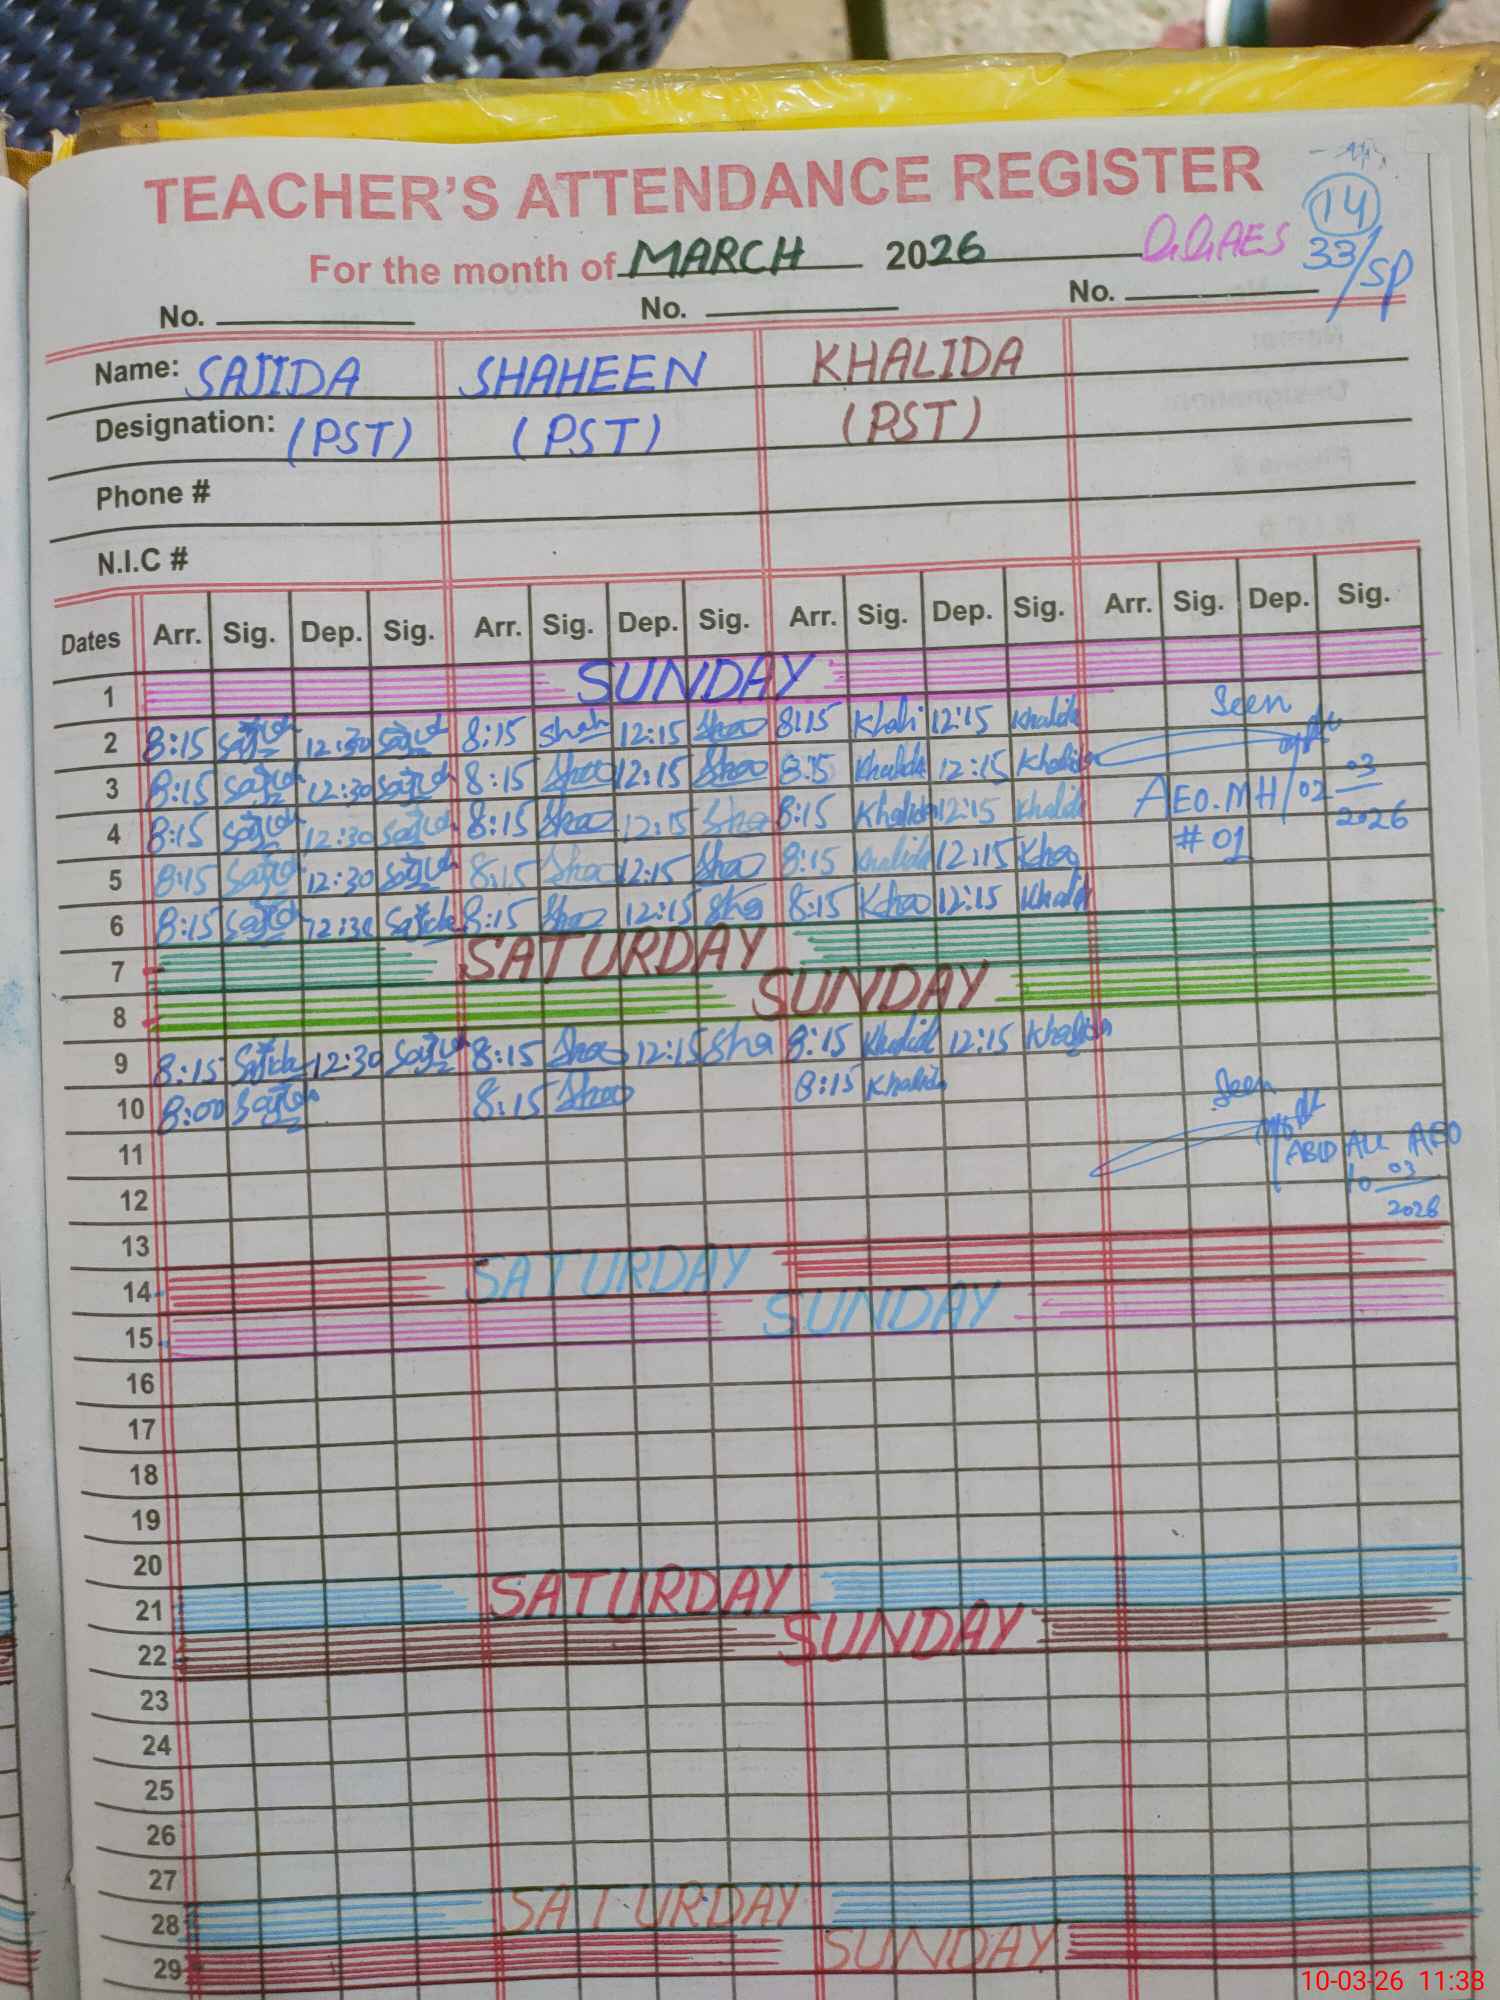 TEACHER'S ATTENDANCE REGISTER
14
For the month of MARCH 2026
33/SP
No. No. No.
Name: SAJIDA SHAHEEN KHALIDA
Designation: (PST) (PST) (PST)
Phone #
N.I.C #
Dates Arr. Sig. Dep. Sig. Arr. Sig. Dep. Sig. Arr. Sig. Dep. Sig. Arr. Sig. Dep. Sig.
1 SUNDAY
2 8:15 12:30 8:15 Shah 12:15 8:15 Khali 12:15 Khalida Seen
3 8:15 12:30 8:15 12:15 8:15 Khalida 12:15 Khalida
4 8:15 12:30 8:15 12:15 8:15 Khalida 12:15 Khalida AEO.MH 02 03 2026
5 8:15 12:30 8:15 12:15 8:15 Khalida 12:15 # 01
6 8:15 12:30 8:15 12:15 8:15 12:15
7 SATURDAY
8 SUNDAY
9 8:15 12:30 8:15 12:15 Sha 8:15 12:15 Khalida
10 8:00 8:15 8:15 Khalida Seen
11 ABID ALI AEO
12 10 03 2026
13
14 SATURDAY
15 SUNDAY
16
17
18
19
20
21 SATURDAY
22 SUNDAY
23
24
25
26
27
28 SATURDAY
29 SUNDAY
10-03-26 11:38